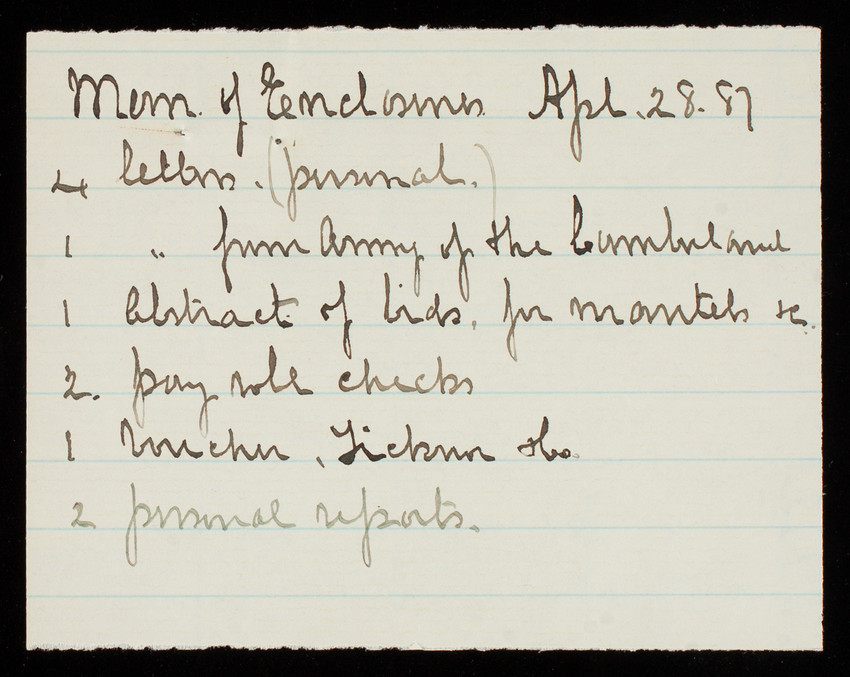 Mem. of Enclosures Apl. 28. 87
4 letters. (personal.)
1 " from Army of the Cumberland
1 Abstract of bids, for mantels &c.
2. pay roll checks
1 Voucher, Ticknor &Co
2 personal reports.